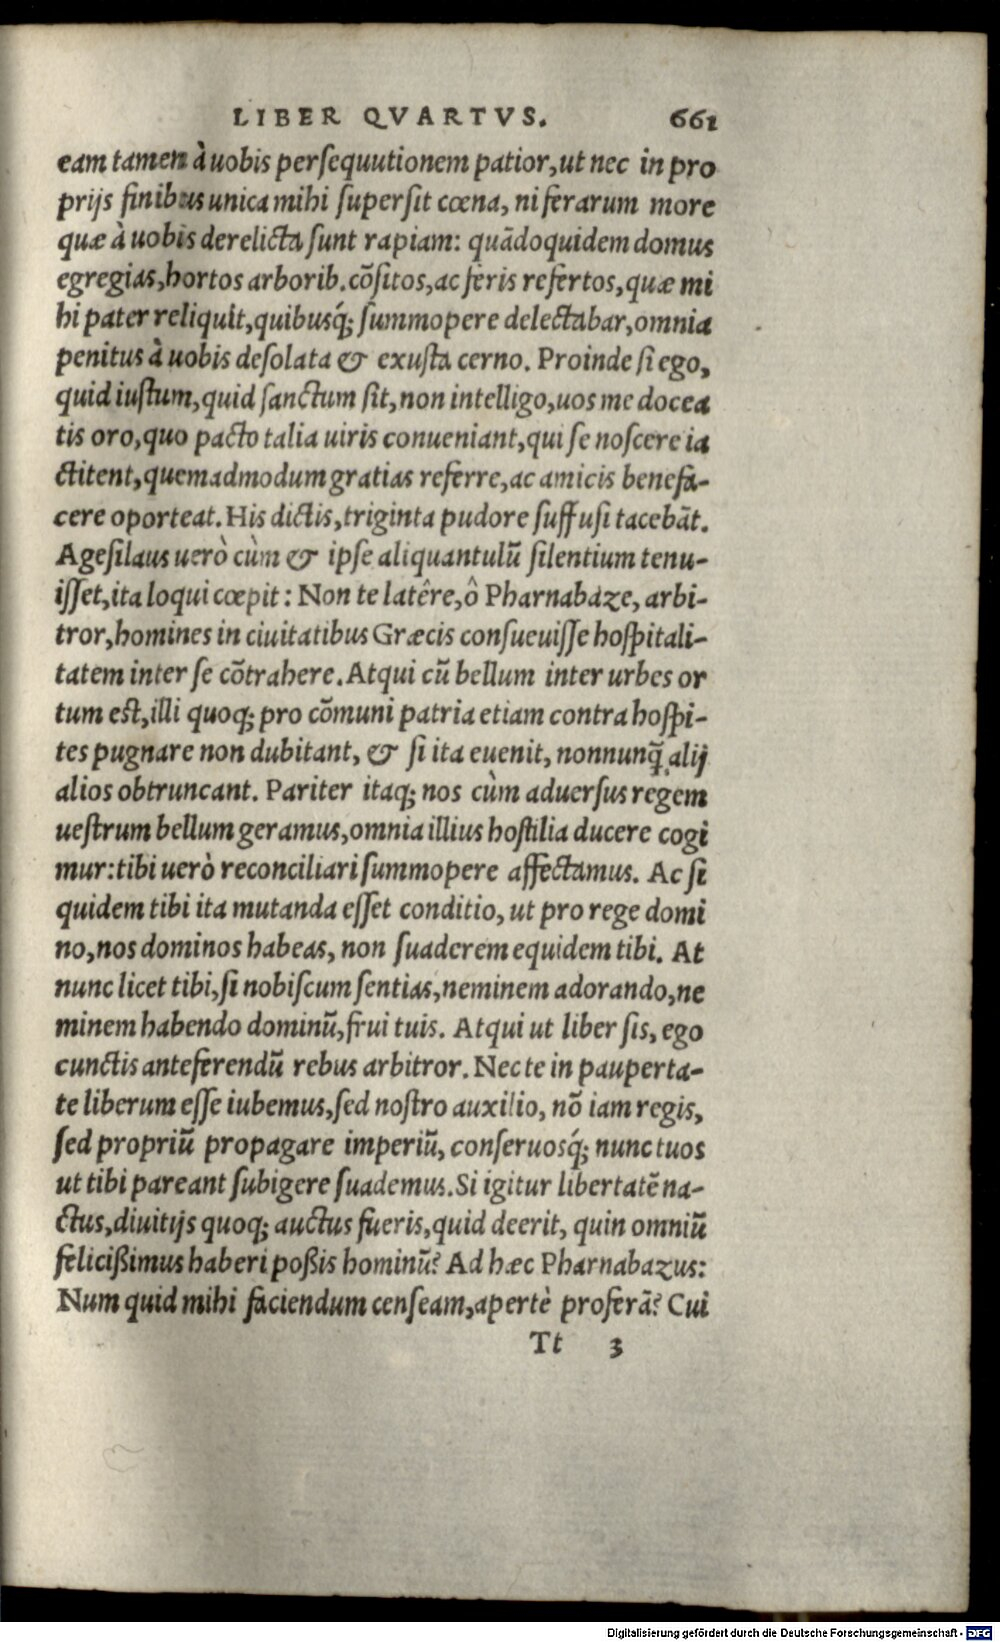 LIBER QVARTVS. 661
eam tamen à uobis persequutionem patior, ut nec in pro
prijs finibus unica mihi supersit cœna, ni ferarum more
quæ à uobis derelicta sunt rapiam: quādoquidem domus
egregias, hortos arborib. cōsitos, ac feris refertos, quæ mi
hi pater reliquit, quibusq́; summopere delectabar, omnia
penitus à uobis desolata & exusta cerno. Proinde si ego,
quid iustum, quid sanctum sit, non intelligo, uos me docea
tis oro, quo pacto talia uiris conueniant, qui se noscere ia
ctitent, quemadmodum gratias referre, ac amicis benefa-
cere oporteat. His dictis, triginta pudore suffusi tacebāt.
Agesilaus uerò cùm & ipse aliquantulū silentium tenu-
isset, ita loqui cœpit: Non te latêre, ô Pharnabaze, arbi-
tror, homines in ciuitatibus Græcis consueuisse hospitali-
tatem inter se cōtrahere. Atqui cū bellum inter urbes or
tum est, illi quoq; pro cōmuni patria etiam contra hospi-
tes pugnare non dubitant, & si ita euenit, nonnunq̃ alij
alios obtruncant. Pariter itaq; nos cùm aduersus regem
uestrum bellum geramus, omnia illius hostilia ducere cogi
mur: tibi uerò reconciliari summopere affectamus. Ac si
quidem tibi ita mutanda esset conditio, ut pro rege domi
no, nos dominos habeas, non suaderem equidem tibi. At
nunc licet tibi, si nobiscum sentias, neminem adorando, ne
minem habendo dominū, frui tuis. Atqui ut liber sis, ego
cunctis anteferendū rebus arbitror. Nec te in pauperta-
te liberum esse iubemus, sed nostro auxilio, nō iam regis,
sed propriū propagare imperiū, conseruosq́; nunc tuos
ut tibi pareant subigere suademus. Si igitur libertatē na-
ctus, diuitijs quoq; auctus fueris, quid deerit, quin omniū
felicißimus haberi poßis hominū? Ad hæc Pharnabazus:
Num quid mihi faciendum censeam, apertè proferā? Cui
Tt 3
Digitalisierung gefördert durch die Deutsche Forschungsgemeinschaft - DFG